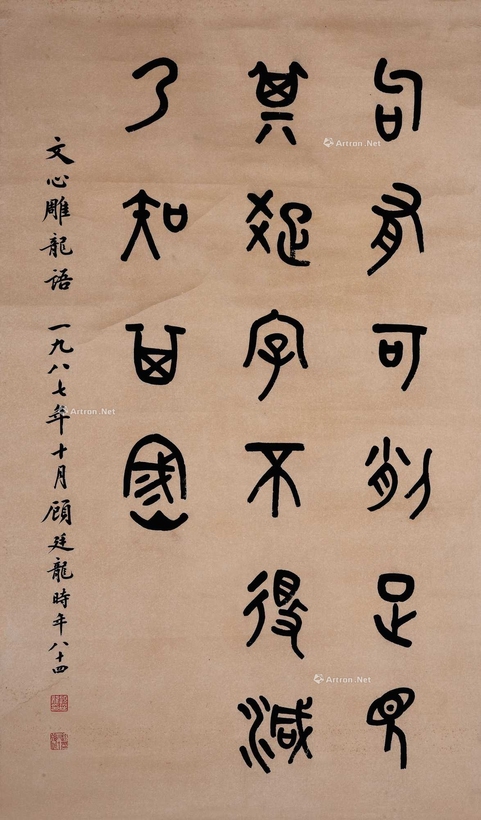 句有可削足見
其疏字不得減
乃知其密
文心雕龍語 一九八七年十月顧廷龍時年八十四
Artron.Net
Artron.Net
Artron.Net